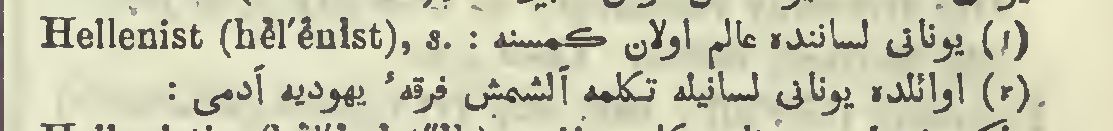 Hellenist (hĕl′ĕnĭst), s. : (١) یونانی لساننده عالم اولان كمسنه
(٢) اوائلده یونانی لسانیله تكلمه آلشمش فرقهٔ یهودیه آدمی :